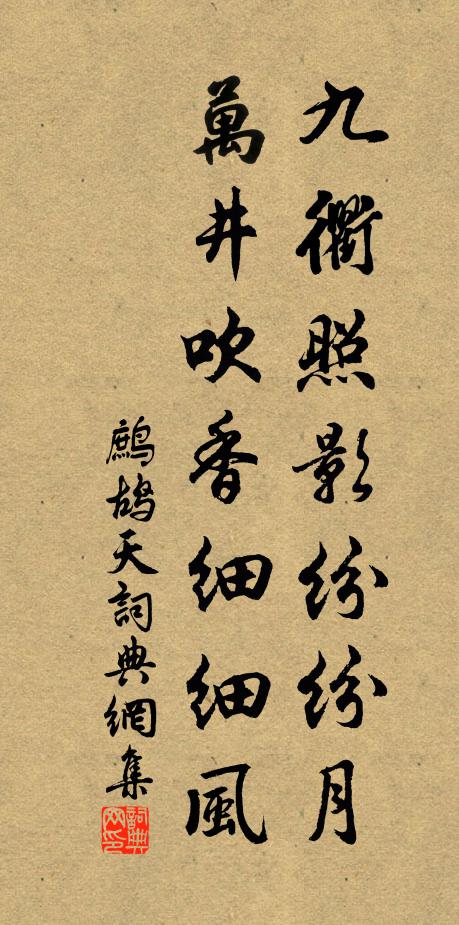 九衢照影紛紛月
萬井吹香細細風
鷓鴣天詞典網集
詞典網印